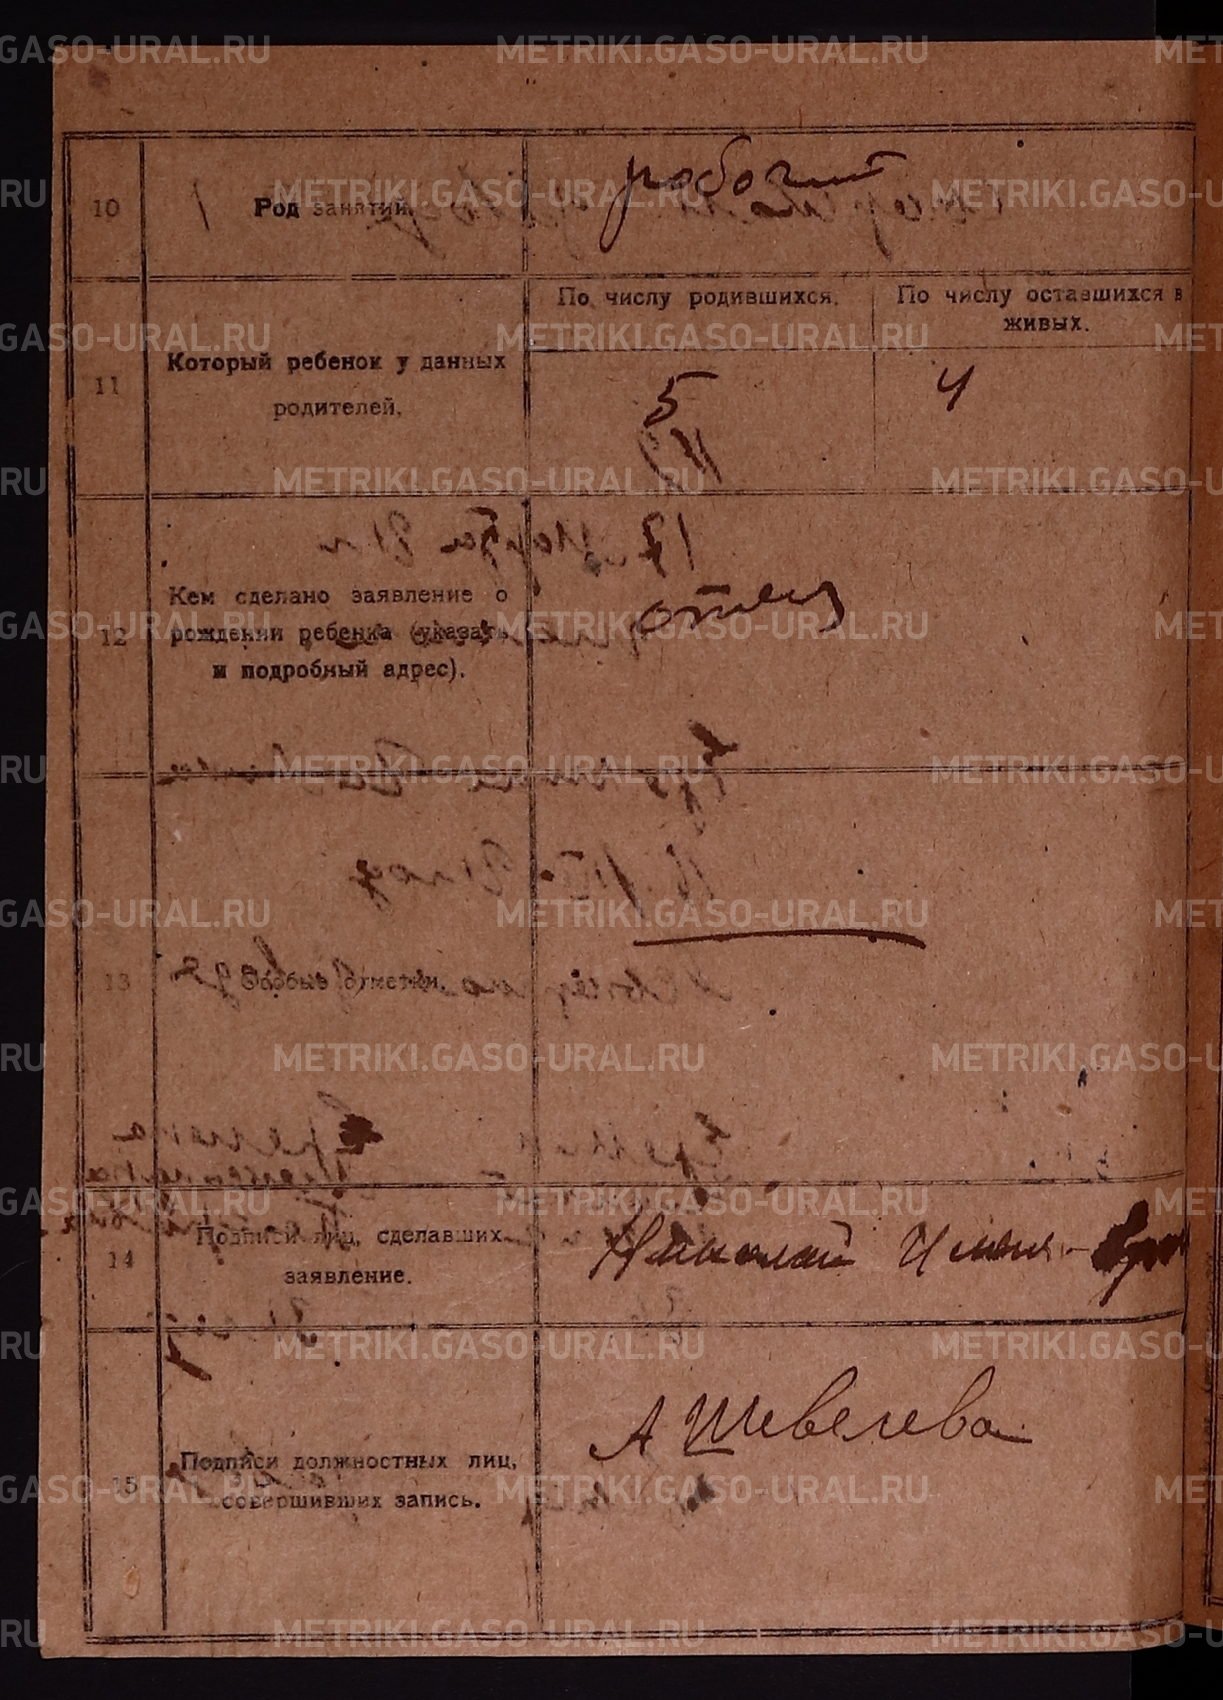 METRIKI.GASO-URAL.RU
10
Род занятий.
робочий
11
Который ребенок у данных
родителей.
По числу родившихся.
По числу оставшихся в
живых.
5
4
12
Кем сделано заявление о
рождении ребенка (указать
и подробный адрес).
отец
13
Особые отметки.
14
Подписи лиц, сделавших
заявление.
Николай
15
Подписи должностных лиц,
совершивших запись.
А Шевелева